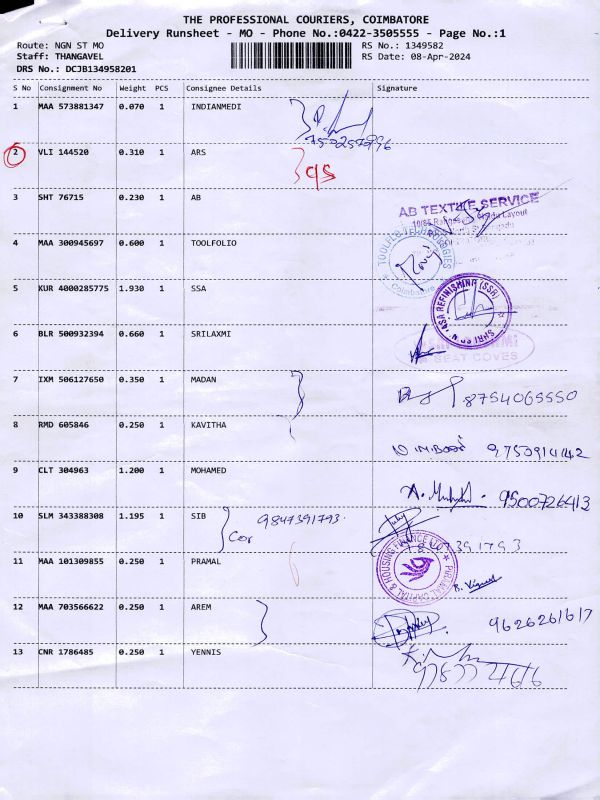 THE PROFESSIONAL COURIERS, COIMBATORE
Delivery Runsheet - MO - Phone No.:0422-3505555 - Page No.:1
Route: NGN ST MO RS No.: 1349582
Staff: THANGAVEL RS Date: 08-Apr-2024
DRS No.: DCJB134958201
S No Consignment No Weight PCS Consignee Details Signature
1 MAA 573881347 0.070 1 INDIANMEDI
2 VLI 144520 0.310 1 ARS
3 SHT 76715 0.230 1 AB
AB TEXTILE SERVICE
4 MAA 300945697 0.600 1 TOOLFOLIO
Coimbatore
5 KUR 4000285775 1.930 1 SSA
6 BLR 500932394 0.660 1 SRILAXMI
SEAT COVES
7 IXM 506127650 0.350 1 MADAN
8754065550
8 RMD 605846 0.250 1 KAVITHA
9 CLT 304963 1.200 1 MOHAMED
9500726413
10 SLM 343388308 1.195 1 SIB
9847391793
11 MAA 101309855 0.250 1 PRAMAL
B. Vignesh
12 MAA 703566622 0.250 1 AREM
9626261617
13 CNR 1786485 0.250 1 YENNIS